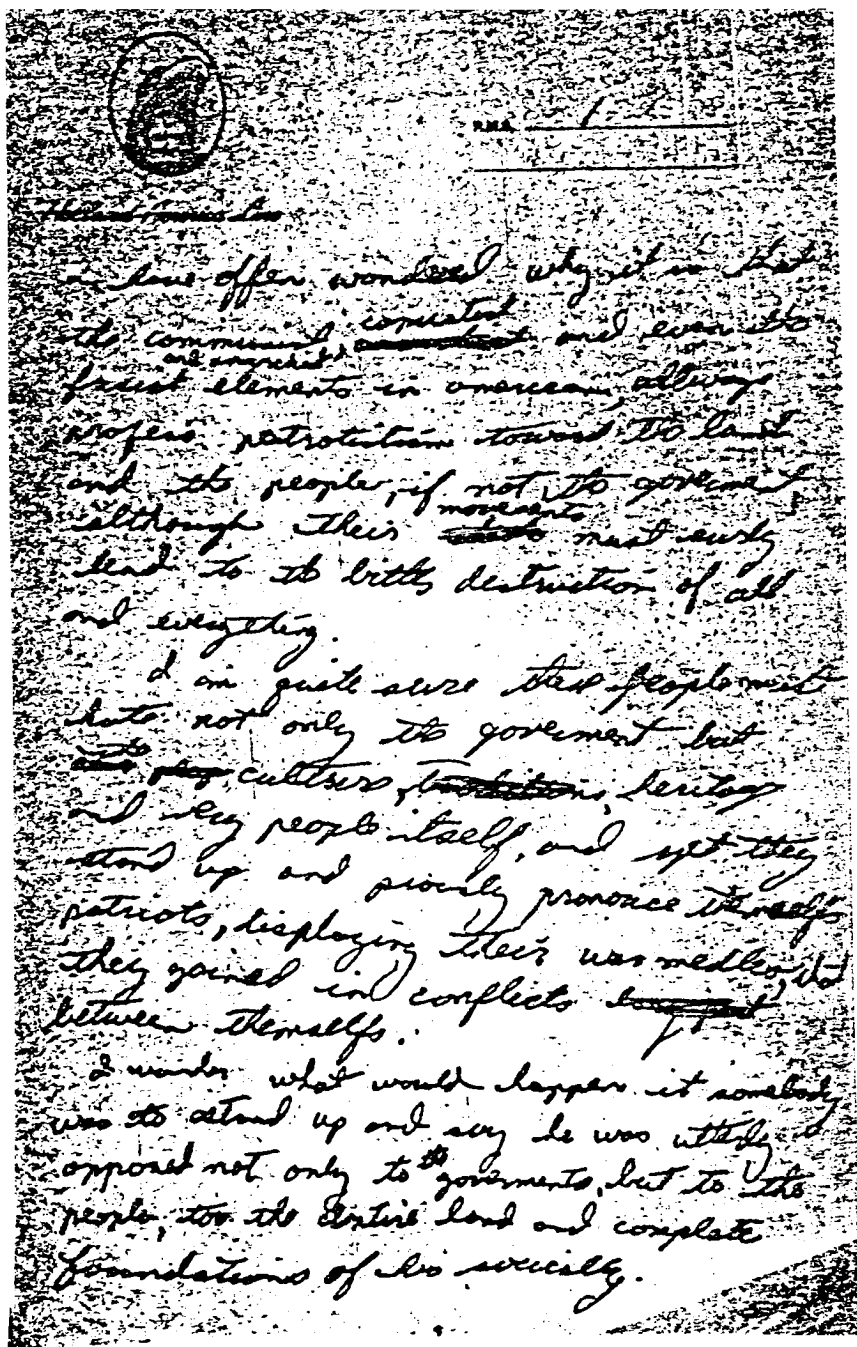 P.M.S. 1
Holland America Line
I have offen wondered why it is that
the communist, capitalist and even the
fasist and anarchist elements in american, allways
profess patrotistism toward the land
and the people, if not the goverment,
although their movements must surly
lead to the bitter destruction of all
and everything.
I am quite sure these people must
hate not only the goverment but
the culture, traditions, heritage
and very people itself, and yet they
stand up and piously pronouce themselfs
patriots, displaying their war medles, that
they gained in conflicts long past
between themselfs.
I wonder what would happen it somebody
was to stand up and say he was utterly
opposed not only to the goverments, but to the
people, too the entire land and complete
foundations of his socially.